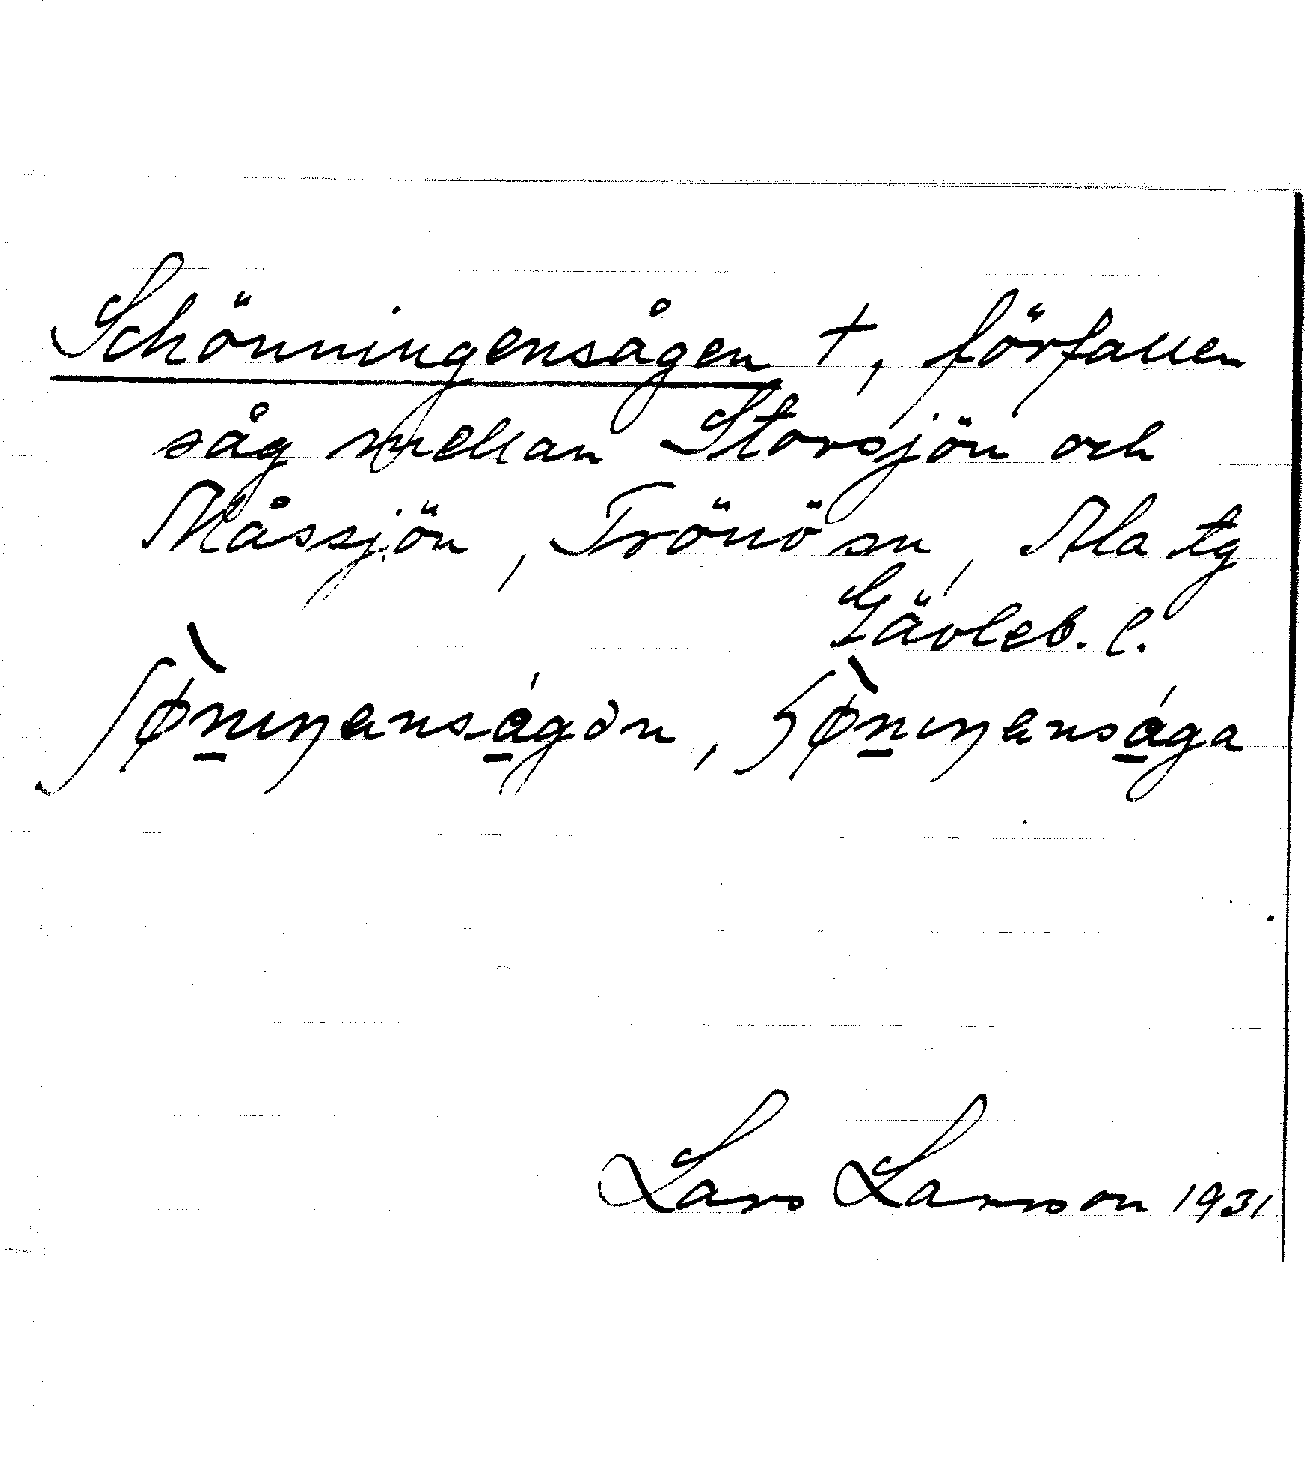 Schönningensågen †, förfallen
såg mellan Storsjön och
Måssjön, Trönö sn, Ala tg
Gävleb. l.
ʃø̀n̠ıŋenságå̠gən, ʃø̀n̠ıŋensá̠ga
Lars Larsson 1931